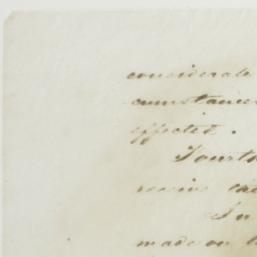 considerate
cumstances
effected.
Fourth
receive
In
made on